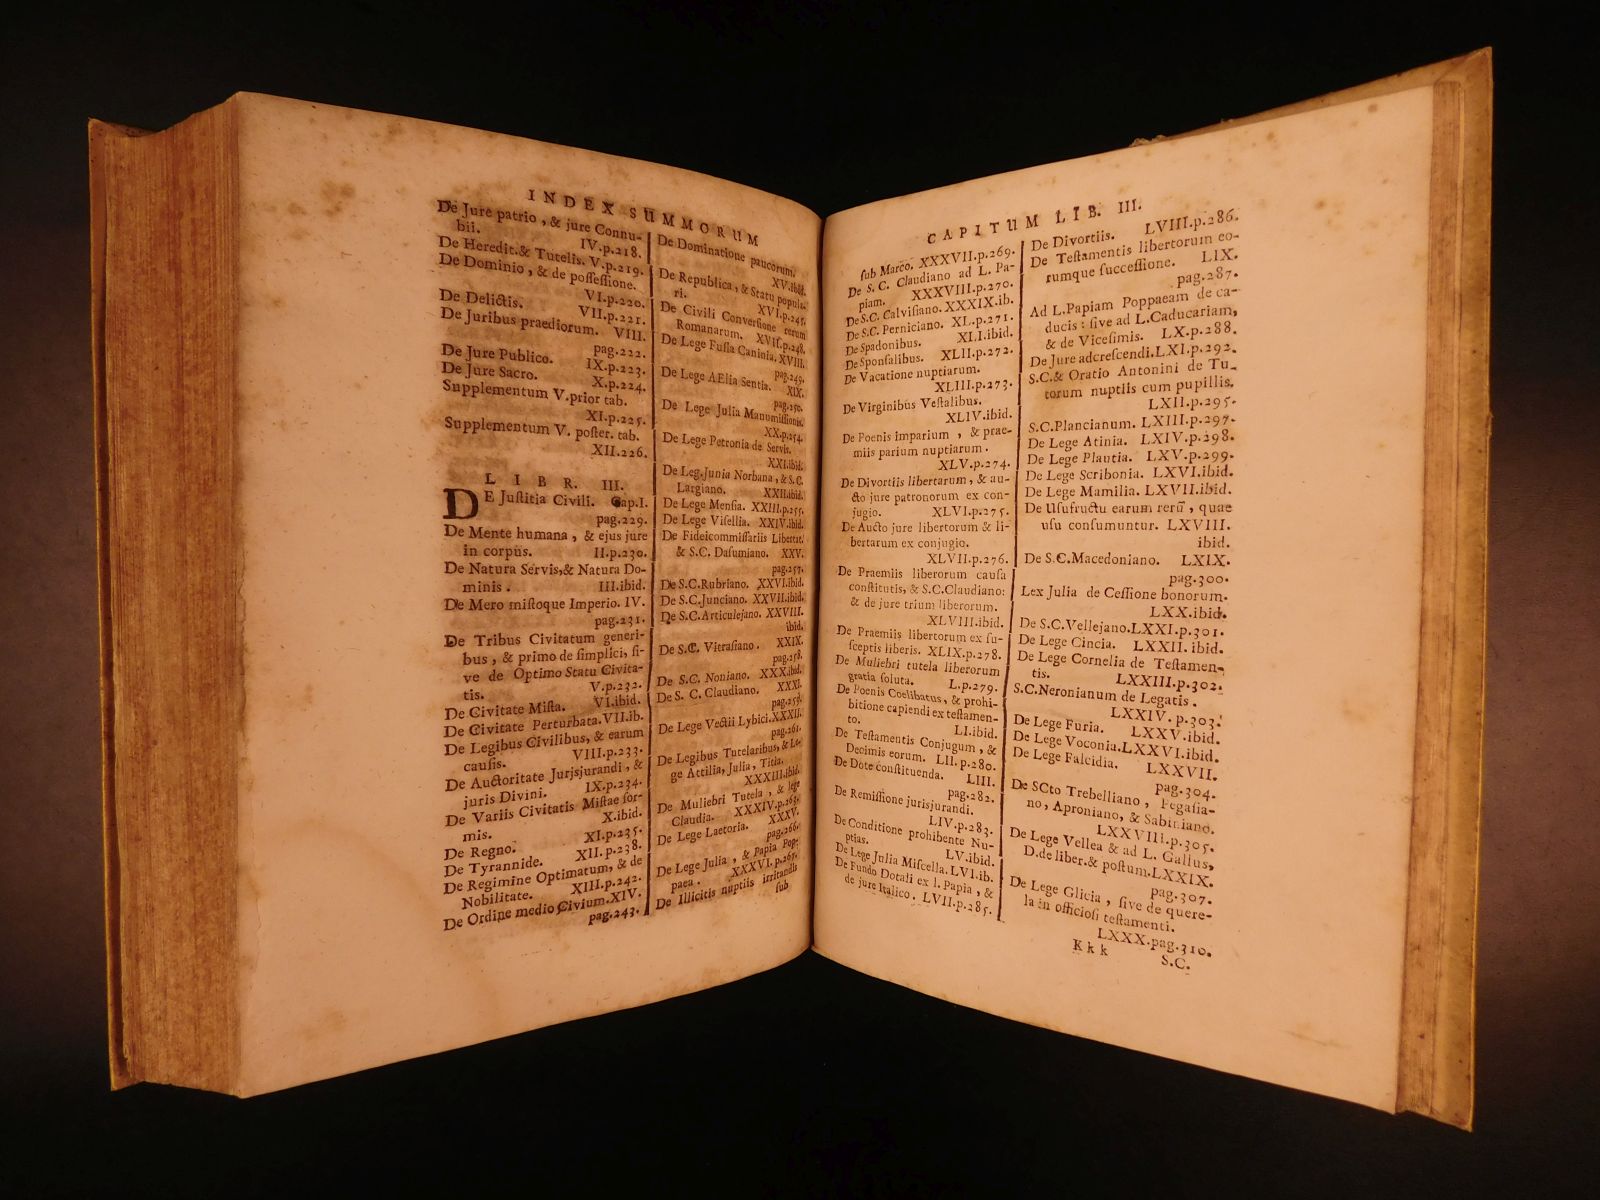 INDEX SUMMORUM
De Jure patrio, & jure Connu-
bii. IV.p.218.
De Heredit.& Tutelis. V.p.219.
De Dominio, & de possessione.
VI.p.220.
De Delictis. VII.p.221.
De Juribus praediorum. VIII.
pag.222.
De Jure Publico. IX.p.223.
De Jure Sacro. X.p.224.
Supplementum V.prior tab.
XI.p.225.
Supplementum V. poster. tab.
XII.226.
LIBR. III.
DE Justitia Civili. Cap.I.
pag.229.
De Mente humana, & ejus jure
in corpus. II.p.230.
De Natura Servis,& Natura Do-
minis. III.ibid.
De Mero mistoque Imperio. IV.
pag.231.
De Tribus Civitatum generi-
bus, & primo de simplici, si-
ve de Optimo Statu Civita-
tis. V.p.232.
De Civitate Mista. VI.ibid.
De Civitate Perturbata.VII.ib.
De Legibus Civilibus, & earum
causis. VIII.p.233.
De Auctoritate Jurjsjurandi, &
juris Divini. IX.p.234.
De Variis Civitatis Mistae for-
mis. X.ibid.
De Regno. XI.p.235.
De Tyrannide. XII.p.238.
De Regimine Optimatum, & de
Nobilitate. XIII.p.242.
De Ordine medio Civium.XIV.
pag.243.
De Dominatione paucorum.
XV.ibid.
De Republica, & Statu popula-
ri. XVI.p.245.
De Civili Conversione rerum
Romanarum. XVII.p.248.
De Lege Fusia Caninia. XVIII.
pag.249.
De Lege AElia Sentia. XIX.
pag.250.
De Lege Julia Manumissionis.
XX.p.254.
De Lege Petronia de Servis.
XXI.ibid.
De Leg.Junia Norbana, & S.C.
Largiano. XXII.ibid.
De Lege Mensia. XXIII.p.255.
De Lege Visellia. XXIV.ibid.
De Fideicommissariis Libertat.
& S.C. Dasumiano. XXV.
pag.257.
De S.C.Rubriano. XXVI.ibid.
De S.C.Junciano. XXVII.ibid.
De S.C.Articulejano. XXVIII.
ibid.
De S.C. Vitrasiano. XXIX.
pag.258.
De S.C. Noniano. XXX.ibid.
De S. C. Claudiano. XXXI.
pag.259.
De Lege Vectii Lybici.XXXII.
pag.261.
De Legibus Tutelaribus, & Le-
ge Attilia, Julia, Titia.
XXXIII.ibid.
De Muliebri Tutela, & lege
Claudia. XXXIV.p.263.
De Lege Laetoria. XXXV.
pag.266.
De Lege Julia, & Papia Pop-
paea. XXXVI.p.267.
De Illicitis nuptiis irritandis
sub
CAPITUM LIB. III.
sub Marco. XXXVII.p.269.
De S. C. Claudiano ad L. Pa-
piam. XXXVIII.p.270.
De S.C. Calvisiano. XXXIX.ib.
De S.C. Perniciano. XL.p.271.
De Spadonibus. XLI.ibid.
De Sponsalibus. XLII.p.272.
De Vacatione nuptiarum.
XLIII.p.273.
De Virginibus Vestalibus.
XLIV.ibid.
De Poenis imparium, & prae-
miis parium nuptiarum.
XLV.p.274.
De Divortiis libertarum, & au-
cto jure patronorum ex con-
jugio. XLVI.p.275.
De Aucto jure libertorum & li-
bertarum ex conjugio.
XLVII.p.276.
De Praemiis liberorum causa
constitutis, & S.C.Claudiano:
& de jure trium liberorum.
XLVIII.ibid.
De Praemiis libertorum ex su-
sceptis liberis. XLIX.p.278.
De Muliebri tutela liberorum
gratia soluta. L.p.279.
De Poenis Coelibatus, & prohi-
bitione capiendi ex testamen-
to. LI.ibid.
De Testamentis Conjugum, &
Decimis eorum. LII.p.280.
De Dote constituenda. LIII.
pag.282.
De Remissione jurisjurandi.
LIV.p.283.
De Conditione prohibente Nu-
ptias. LV.ibid.
De Lege Julia Miscella. LVI.ib.
De Fundo Dotali ex l. Papia, &
de jure Italico. LVII.p.285.
De Divortiis. LVIII.p.286.
De Testamentis libertorum eo-
rumque successione. LIX.
pag.287.
Ad L.Papiam Poppaeam de ca-
ducis: sive ad L.Caducariam,
& de Vicesimis. LX.p.288.
De Jure adcrescendi.LXI.p.292.
S.C.& Oratio Antonini de Tu-
torum nuptiis cum pupillis.
LXII.p.295.
S.C.Plancianum. LXIII.p.297.
De Lege Atinia. LXIV.p.298.
De Lege Plautia. LXV.p.299.
De Lege Scribonia. LXVI.ibid.
De Lege Mamilia. LXVII.ibid.
De Usufructu earum rerū, quae
usu consumuntur. LXVIII.
ibid.
De S.C.Macedoniano. LXIX.
pag.300.
Lex Julia de Cessione bonorum.
LXX.ibid.
De S.C.Vellejano.LXXI.p.301.
De Lege Cincia. LXXII.ibid.
De Lege Cornelia de Testamen-
tis. LXXIII.p.302.
S.C.Neronianum de Legatis.
LXXIV.p.303.
De Lege Furia. LXXV.ibid.
De Lege Voconia.LXXVI.ibid.
De Lege Falcidia. LXXVII.
pag.304.
De SCto Trebelliano, Pegasia-
no, Aproniano, & Sabiniano.
LXXVIII.p.305.
De Lege Vellea & ad L. Gallus,
D.de liber.& postum.LXXIX.
pag.307.
De Lege Glicia, sive de quere-
la in officiosi testamenti.
LXXX.pag.310.
Kkk S.C.